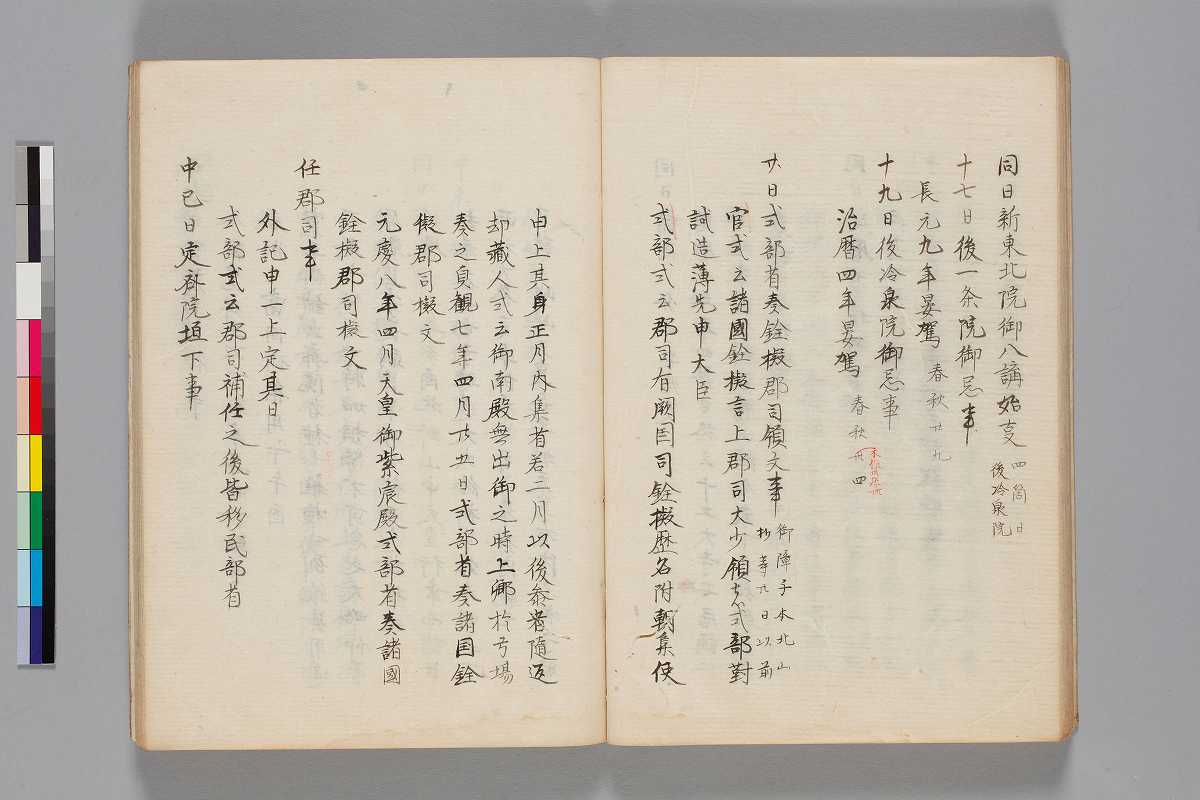 同日新東北院御八講始事 四箇日 後冷泉院
十七日後一条院御忌事
長元九年晏駕 春秋廿九
十九日後冷泉院御忌事
治暦四年晏駕 春秋卌四
廿日式部省奏銓擬郡司領文事 御障子本北山 抄等九日以前
官式云諸國銓擬言上郡司大少領者式部對
試造薄先申大臣
式部式云郡司有闕国司銓擬歴名附朝集使
申上其身正月內集省若二月以後参者隨返
却藏人式云御南殿無出御之時上卿於弓場
奏之貞観七年四月廿五日式部省奏諸国銓
擬郡司擬文
元慶八年四月天皇御紫宸殿式部省奏諸國
銓擬郡司擬文
任郡司事
外記申一上定其日
式部式云郡司補任之後皆移民部省
中巳日定斎院垣下事